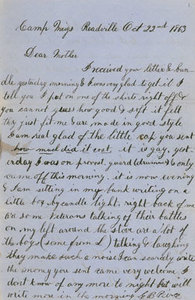 Camp Meigs Readville Oct 22nd 1863
Dear Mother
I received your letter & bun-
dle yesterday morning & I was very glad to get it I
tell you I put on one of the shirts right off &
you cannot guess how good & soft it felt
they just fit me & are made in good style
I am real glad of the little cap you sent
how much did it cost it is gay, yest-
erday I was on provost guard and only
came off this morning. it is now evening
& I am sitting in my bunk writing on a
little box by candle light, right back of me
are some Veterans talking of their battles
on my left around the stove are a lot of
the boys (some from) talking & laughing
they make such a noise I can scarcely write
the money you sent came very welcome. I
don't know of any more to night but will